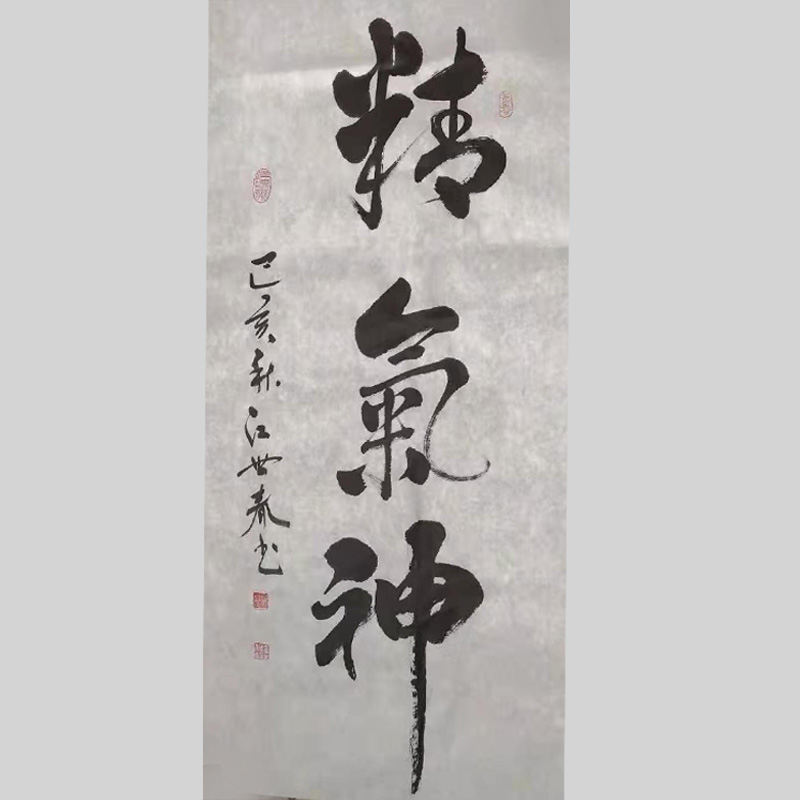 精氣神
己亥秋江世春书